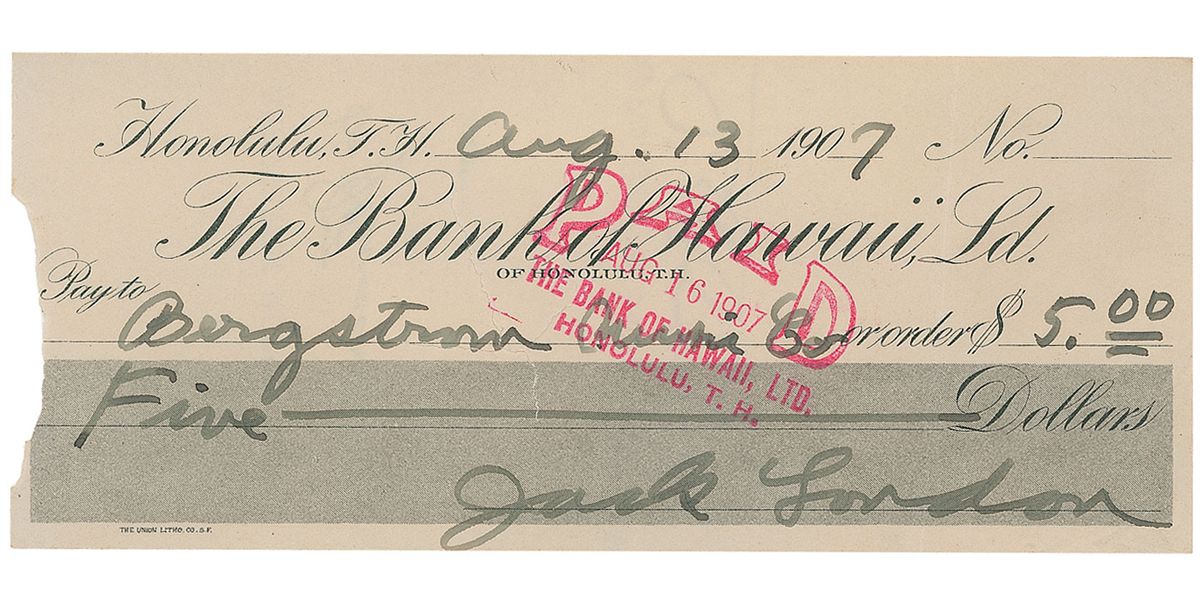 Honolulu, T.H. Aug. 13 1907 No.
The Bank of Hawaii, Ld.
OF HONOLULU, T.H.
Pay to Bergstrom Music Co. or order $ 5.00
Five Dollars
Jack London
PAID
AUG 16 1907
THE BANK OF HAWAII, LTD.
HONOLULU, T. H.
THE UNION LITHO. CO. S.F.